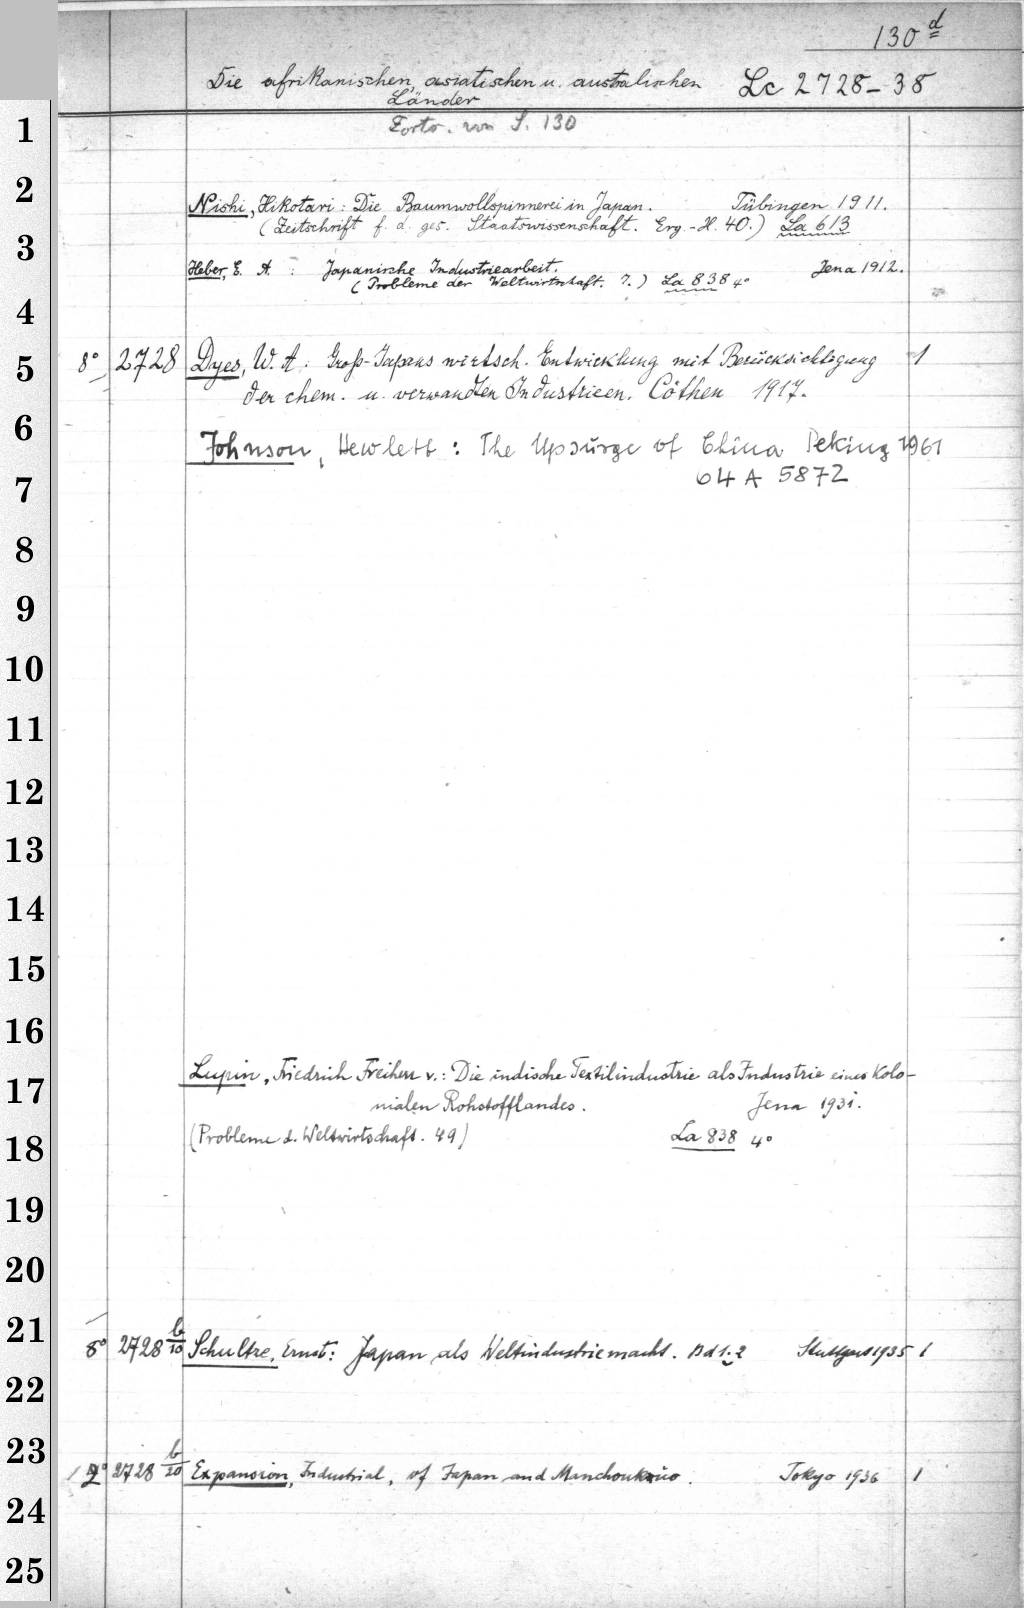 130 d
Die afrikanischen, asiatischen u. australischen Lc 2728-38
Länder
Forts. von S. 130
1
2
Nishi, Hikotari: Die Baumwollspinnerei in Japan. Tübingen 1911.
(Zeitschrift f. d. ges. Staatswissenschaft. Erg.-H. 40.) La 613
3
Heber, E. A. : Japanische Industriearbeit. Jena 1912.
(Probleme der Weltwirtschaft. 7.) La 838 4°
4
5
8° 2728 Dyes, W. A.: Groß-Japans wirtsch. Entwicklung mit Berücksichtigung 1
der chem. u. verwandten Industrieen. Cöthen 1917.
6
Johnson, Hewlett: The Upsurge of China Peking 1961
64 A 5872
7
8
9
10
11
12
13
14
15
16
17
Lupin, Friedrich Freiherr v.: Die indische Textilindustrie als Industrie eines Kolo-
nialen Rohstofflandes. Jena 1931.
18
(Probleme d. Weltwirtschaft. 49) La 838 4°
19
20
21
8° 2728 b/10 Schultze, Ernst: Japan als Weltindustriemacht. Bd 1. 2 Stuttgart 1935 1
22
23
2° 2728 b/20 Expansion, Industrial, of Japan and Manchoukuo. Tokyo 1936 1
24
25